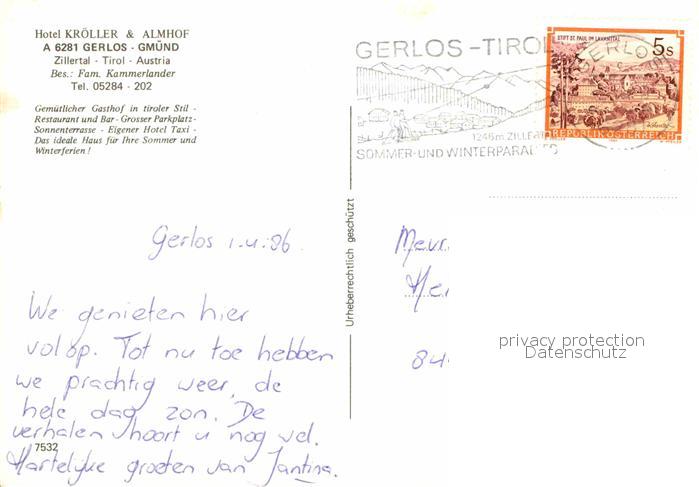 Hotel KRÖLLER & ALMHOF
A 6281 GERLOS - GMÜND
Zillertal - Tirol - Austria
Bes.: Fam. Kammerlander
Tel. 05284 - 202
Gemütlicher Gasthof in tiroler Stil -
Restaurant und Bar - Grosser Parkplatz -
Sonnenterrasse - Eigener Hotel Taxi -
Das ideale Haus für Ihre Sommer und
Winterferien !
GERLOS-TIROL
1246m ZILLERT
SOMMER-UND WINTERPARADIES
STIFT ST. PAUL IM LAVANTTAL
5s
REPUBLIK ÖSTERREICH
GERLOS
Urheberrechtlich geschützt
Gerlos 1.4.'86.
We genieten hier
volop. Tot nu toe hebben
we prachtig weer, de
hele dag zon. De
verhalen hoort u nog wel.
7532
Hartelijke groeten van Jantina.
Mevr.
84
privacy protection
Datenschutz